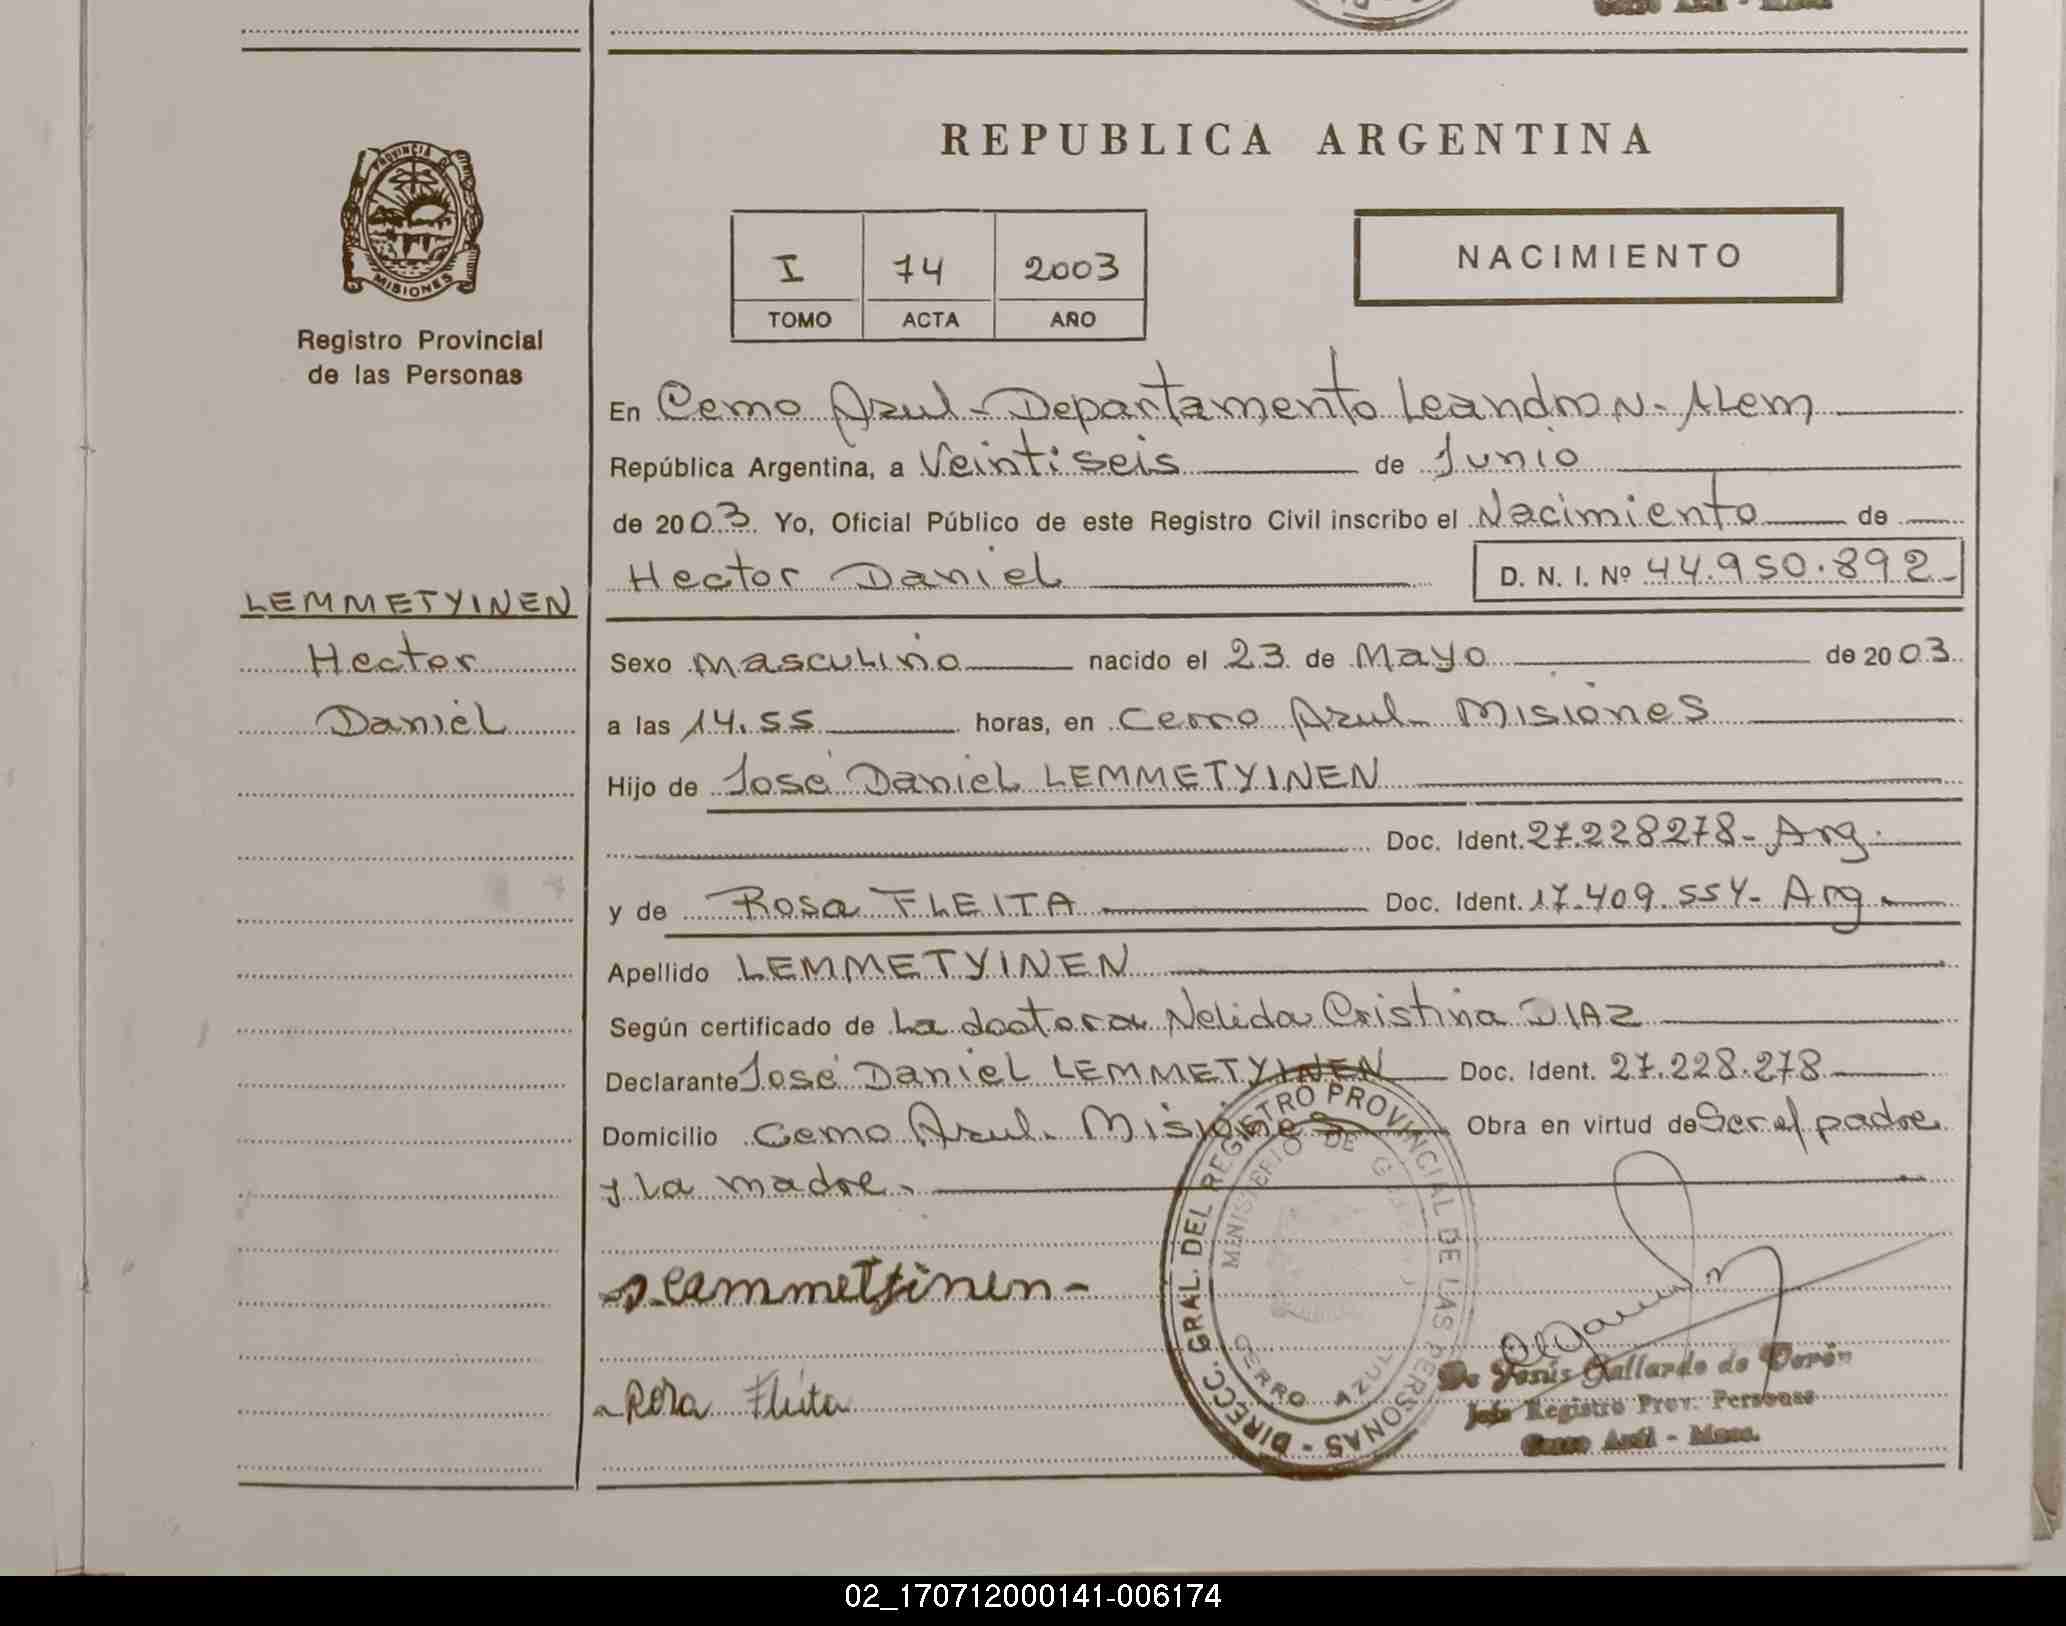 REPUBLICA ARGENTINA
PROVINCIA D
MISIONES
Registro Provincial
de las Personas
I 74 2003
TOMO ACTA AÑO
NACIMIENTO
En Cerro Azul - Departamento Leandro N. Alem
República Argentina, a Veintiseis de Junio
de 2003. Yo, Oficial Público de este Registro Civil inscribo el Nacimiento de
Hector Daniel D. N. I. Nº 44.950.892
LEMMETYINEN
Hector
Daniel
Sexo Masculino nacido el 23 de Mayo de 2003
a las 14.55 horas, en Cerro Azul - Misiones
Hijo de José Daniel LEMMETYINEN
Doc. Ident. 27.228278 - Arg.
y de Rosa FLEITA Doc. Ident. 17.409.554 - Arg.
Apellido LEMMETYINEN
Según certificado de La doctora Nelida Cristina DIAZ
Declarante José Daniel LEMMETYINEN Doc. Ident. 27.228.278
Domicilio Cerro Azul - Misiones Obra en virtud de Ser el padre
y la madre.
DIRECC. GRAL. DEL REGISTRO PROVINCIAL DE LAS PERSONAS -
MINISTERIO DE
CERRO AZUL
Lemmetyinen -
Rosa Fleita
De Jesús Gallardo de
Jefe Registro Prov. Personas
Cerro Azul - Mnes.
02_170712000141-006174